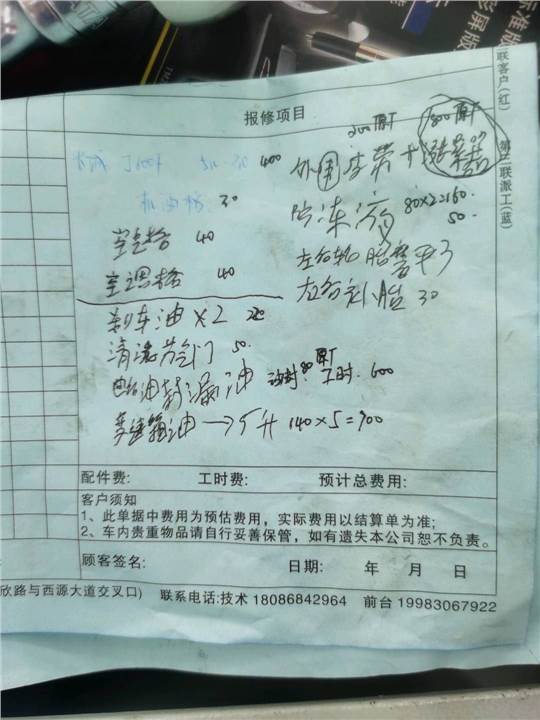 标准版
影屏版
二联客户(红)
第三联派工(蓝)
报修项目
5W-30 400
机油格 30
空气格 40
空调格 40
刹车油×2
清洗节气门 50.
漏油 油封:80 原厂 工时:600
变速箱油→5升 140×5=700
200原厂 800原厂
外围皮带+涨紧器
防冻液 80×2=160.
50.
左右轮胎磨平了
左右补胎 30
配件费: 工时费: 预计总费用:
客户须知
1、此单据中费用为预估费用,实际费用以结算单为准;
2、车内贵重物品请自行妥善保管,如有遗失本公司恕不负责。
顾客签名: 日期: 年 月 日
欣路与西源大道交叉口) 联系电话:技术 18086842964 前台 19983067922